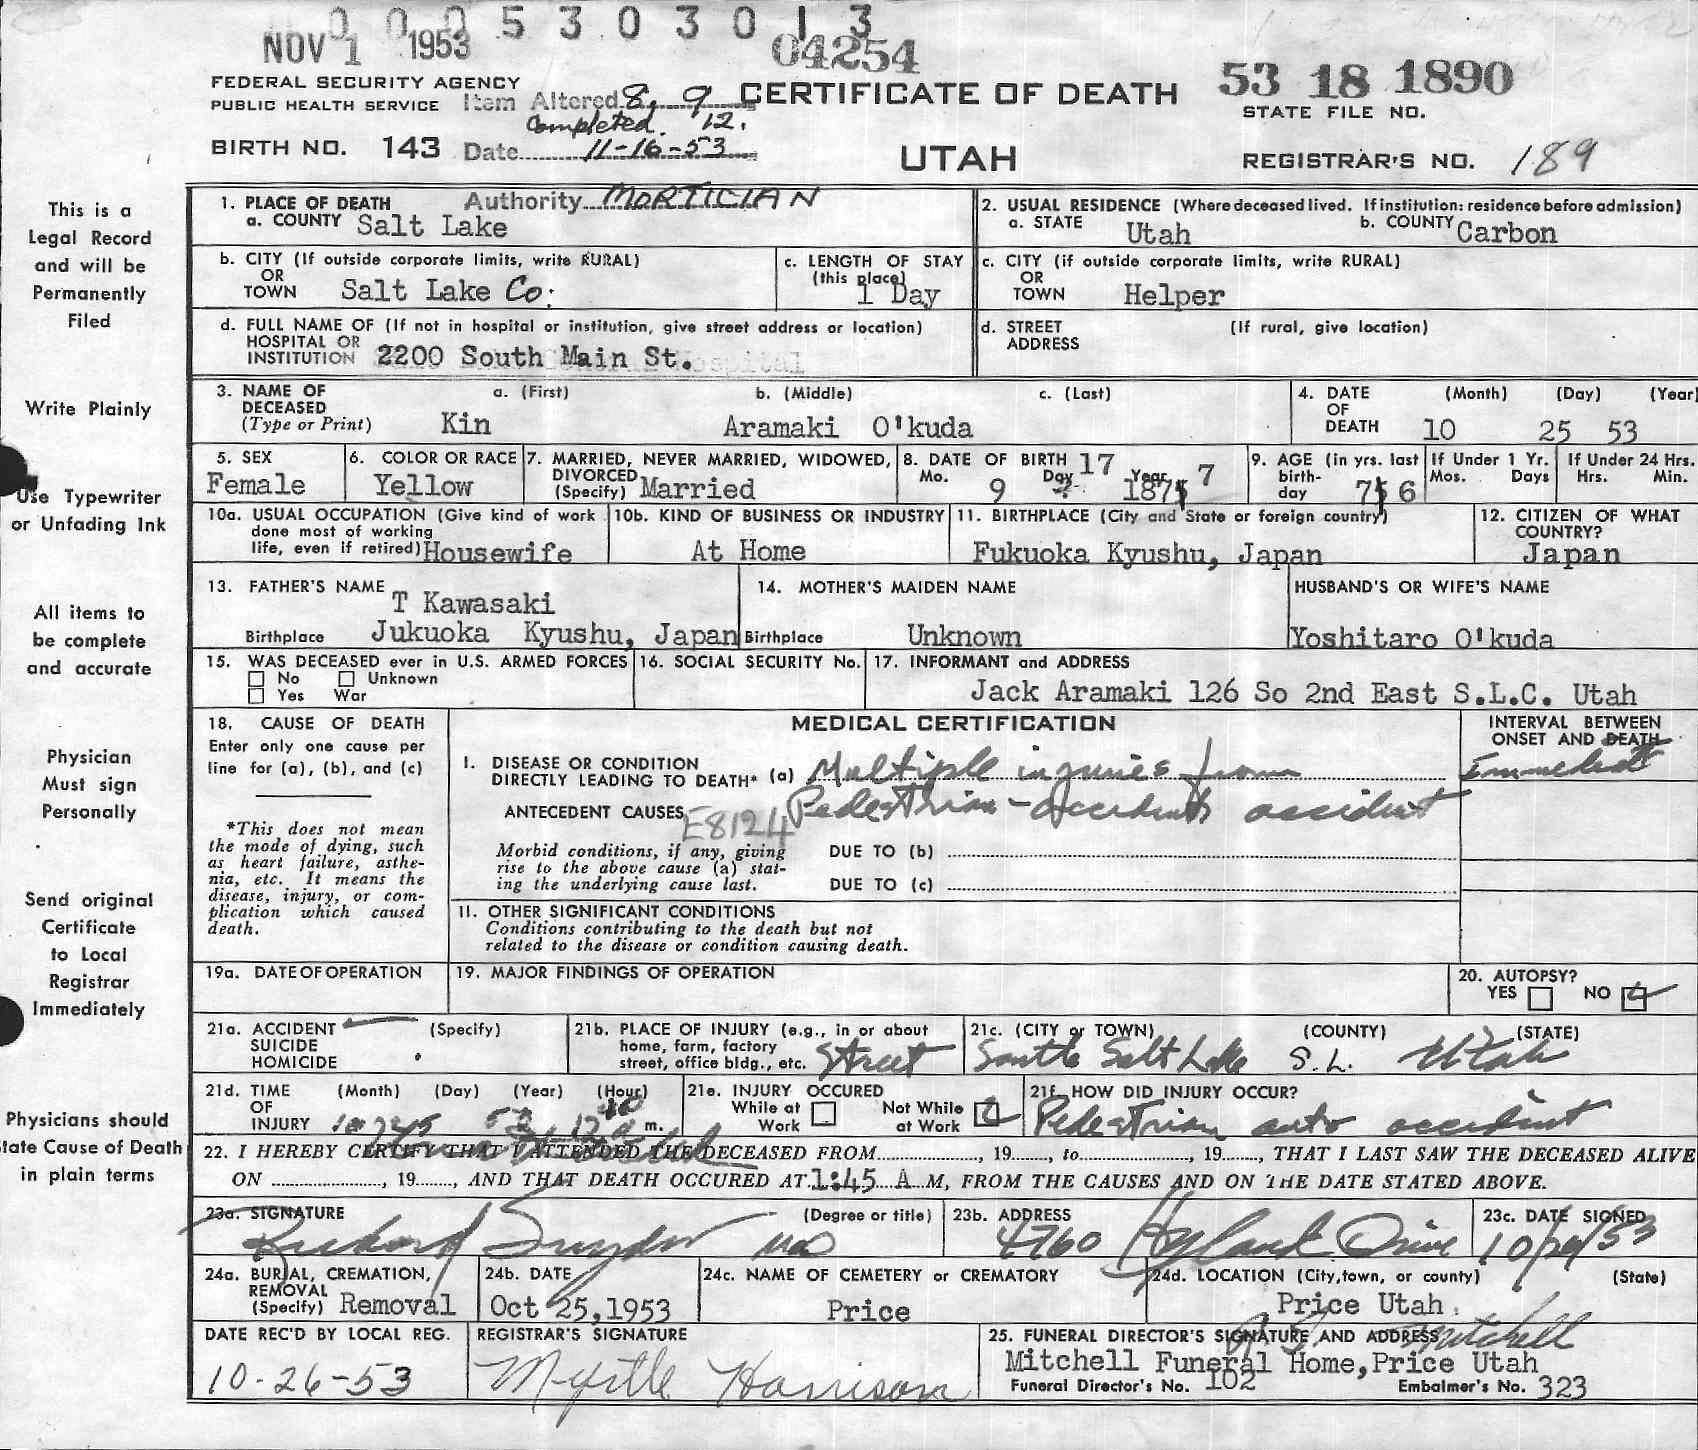 0 0 0 5 3 0 3 0 1 3
NOV 1 1953
04254
53 18 1890
FEDERAL SECURITY AGENCY
PUBLIC HEALTH SERVICE
Item Altered 8, 9
Completed 12.
CERTIFICATE OF DEATH
STATE FILE NO.
BIRTH NO. 143
Date 11-16-53
UTAH
REGISTRAR'S NO. 189
Authority MORTICIAN
This is a
Legal Record
and will be
Permanently
Filed
Write Plainly
Use Typewriter
or Unfading Ink
All items to
be complete
and accurate
Physician
Must sign
Personally
Send original
Certificate
to Local
Registrar
Immediately
Physicians should
tate Cause of Death
in plain terms
1. PLACE OF DEATH
a. COUNTY Salt Lake
2. USUAL RESIDENCE (Where deceased lived. If institution: residence before admission)
a. STATE Utah b. COUNTY Carbon
b. CITY (If outside corporate limits, write RURAL)
OR
TOWN Salt Lake Co.
c. LENGTH OF STAY
(this place)
1 Day
c. CITY (if outside corporate limits, write RURAL)
OR
TOWN Helper
d. FULL NAME OF (If not in hospital or institution, give street address or location)
HOSPITAL OR
INSTITUTION 2200 South Main St.
d. STREET (If rural, give location)
ADDRESS
3. NAME OF DECEASED
(Type or Print)
a. (First) b. (Middle) c. (Last)
Kin Aramaki O'kuda
4. DATE OF DEATH
(Month) (Day) (Year)
10 25 53
5. SEX
Female
6. COLOR OR RACE
Yellow
7. MARRIED, NEVER MARRIED, WIDOWED,
DIVORCED
(Specify) Married
8. DATE OF BIRTH
Mo. Day Year
9 17 187 7
9. AGE (in yrs. last
birth-
day 7 6
If Under 1 Yr.
Mos. Days
If Under 24 Hrs.
Hrs. Min.
10a. USUAL OCCUPATION (Give kind of work
done most of working
life, even if retired) Housewife
10b. KIND OF BUSINESS OR INDUSTRY
At Home
11. BIRTHPLACE (City and State or foreign country)
Fukuoka Kyushu, Japan
12. CITIZEN OF WHAT
COUNTRY?
Japan
13. FATHER'S NAME
T Kawasaki
Birthplace Jukuoka Kyushu, Japan
14. MOTHER'S MAIDEN NAME
Birthplace Unknown
HUSBAND'S OR WIFE'S NAME
Yoshitaro O'kuda
15. WAS DECEASED ever in U.S. ARMED FORCES
No Unknown
Yes War
16. SOCIAL SECURITY No.
17. INFORMANT and ADDRESS
Jack Aramaki 126 So 2nd East S.L.C. Utah
18. CAUSE OF DEATH
Enter only one cause per
line for (a), (b), and (c)
*This does not mean
the mode of dying, such
as heart failure, asthe-
nia, etc. It means the
disease, injury, or com-
plication which caused
death.
MEDICAL CERTIFICATION
INTERVAL BETWEEN
ONSET AND DEATH
I. DISEASE OR CONDITION
DIRECTLY LEADING TO DEATH* (a) Multiple injuries from
Immediate
ANTECEDENT CAUSES E8124 Pedestrian - accident
Morbid conditions, if any, giving
rise to the above cause (a) stat-
ing the underlying cause last.
DUE TO (b)
DUE TO (c)
11. OTHER SIGNIFICANT CONDITIONS
Conditions contributing to the death but not
related to the disease or condition causing death.
19a. DATE OF OPERATION
19. MAJOR FINDINGS OF OPERATION
20. AUTOPSY?
YES NO
21a. ACCIDENT (Specify)
SUICIDE
HOMICIDE
21b. PLACE OF INJURY (e.g., in or about
home, farm, factory
street, office bldg., etc. Street
21c. (CITY or TOWN) (COUNTY) (STATE)
South Salt Lake S.L. Utah
21d. TIME OF INJURY
(Month) (Day) (Year) (Hour)
10 25 53 12 m.
21e. INJURY OCCURED
While at Work
Not While at Work
21f. HOW DID INJURY OCCUR?
Pedestrian auto accident
22. I HEREBY CERTIFY THAT I ATTENDED THE DECEASED FROM , 19 , to , 19 , THAT I LAST SAW THE DECEASED ALIVE
ON , 19 , AND THAT DEATH OCCURED AT 1:45 A M, FROM THE CAUSES AND ON THE DATE STATED ABOVE.
23a. SIGNATURE (Degree or title)
Richard Snyder MD
23b. ADDRESS
4760 Hyland Drive
23c. DATE SIGNED
10/26/53
24a. BURIAL, CREMATION,
REMOVAL
(Specify) Removal
24b. DATE
Oct 25, 1953
24c. NAME OF CEMETERY or CREMATORY
Price
24d. LOCATION (City, town, or county) (State)
Price Utah.
DATE REC'D BY LOCAL REG.
10-26-53
REGISTRAR'S SIGNATURE
Myrtle Harrison
25. FUNERAL DIRECTOR'S SIGNATURE AND ADDRESS
Mitchell
Mitchell Funeral Home, Price Utah
Funeral Director's No. 102 Embalmer's No. 323